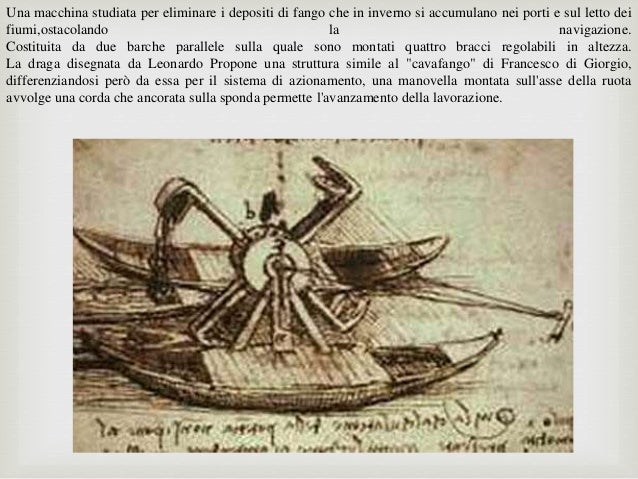 Una macchina studiata per eliminare i depositi di fango che in inverno si accumulano nei porti e sul letto dei
fiumi,ostacolando la navigazione.
Costituita da due barche parallele sulla quale sono montati quattro bracci regolabili in altezza.
La draga disegnata da Leonardo Propone una struttura simile al "cavafango" di Francesco di Giorgio,
differenziandosi però da essa per il sistema di azionamento, una manovella montata sull'asse della ruota
avvolge una corda che ancorata sulla sponda permette l'avanzamento della lavorazione.
b